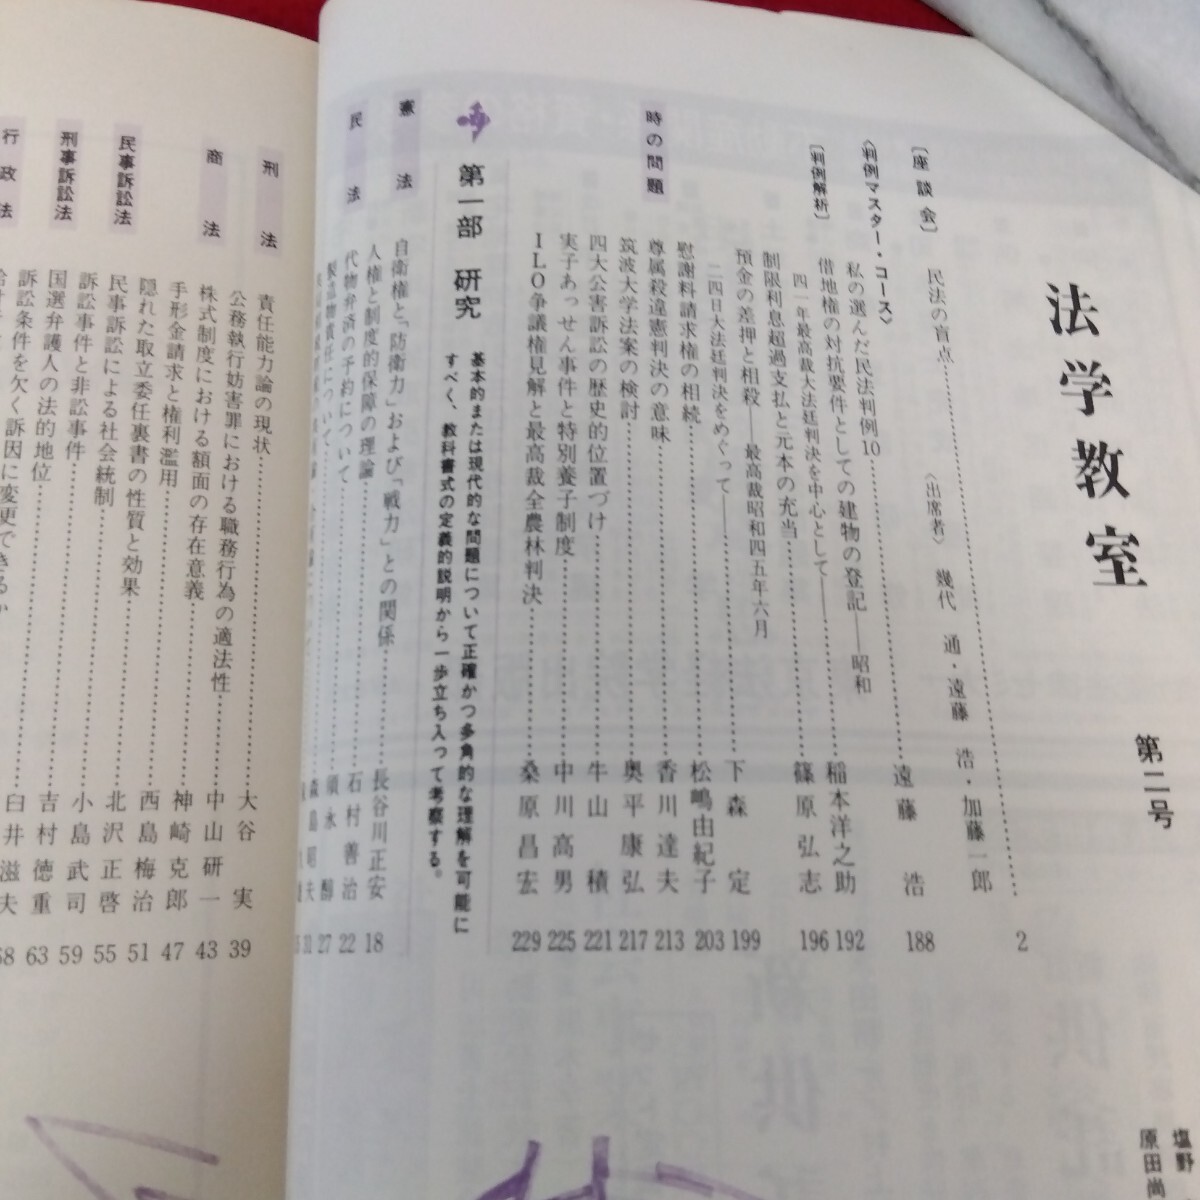 法学教室
第二号
〔座談会〕
民法の盲点
〈出席者〉 幾代 通・遠藤 浩・加藤一郎
2
〈判例マスター・コース〉
私の選んだ民法判例10
遠藤 浩
188
〔判例解析〕
借地権の対抗要件としての建物の登記――昭和
四一年最高裁大法廷判決を中心として――
稲本洋之助
192
制限利息超過支払と元本の充当
篠原弘志
196
預金の差押と相殺――最高裁昭和四五年六月
二四日大法廷判決をめぐって
下森 定
199
時の問題
慰謝料請求権の相続
松嶋由紀子
203
尊属殺違憲判決の意味
香川達夫
213
筑波大学法案の検討
奥平康弘
217
四大公害訴訟の歴史的位置づけ
牛山 積
221
実子あっせん事件と特別養子制度
中川高男
225
ILO争議権見解と最高裁全農林判決
桑原昌宏
229
第一部 研究
基本的または現代的な問題について正確かつ多角的な理解を可能に
すべく、教科書式の定義的説明から一歩立ち入って考察する。
憲法
自衛権と「防衛力」および「戦力」との関係
長谷川正安
18
人権と制度的保障の理論
石村善治
22
民法
代物弁済の予約について
須永 醇
27
製造物責任について
森島昭夫
31
刑法
責任能力論の現状
大谷 実
39
公務執行妨害罪における職務行為の適法性
中山研一
43
商法
株式制度における額面の存在意義
神崎克郎
47
手形金請求と権利濫用
西島梅治
51
隠れた取立委任裏書の性質と効果
北沢正啓
55
民事訴訟法
民事訴訟による社会統制
小島武司
59
訴訟事件と非訟事件
吉村徳重
63
刑事訴訟法
国選弁護人の法的地位
臼井滋夫
68
訴訟条件を欠く訴因に変更できるか
行政法
塩野
原田尚